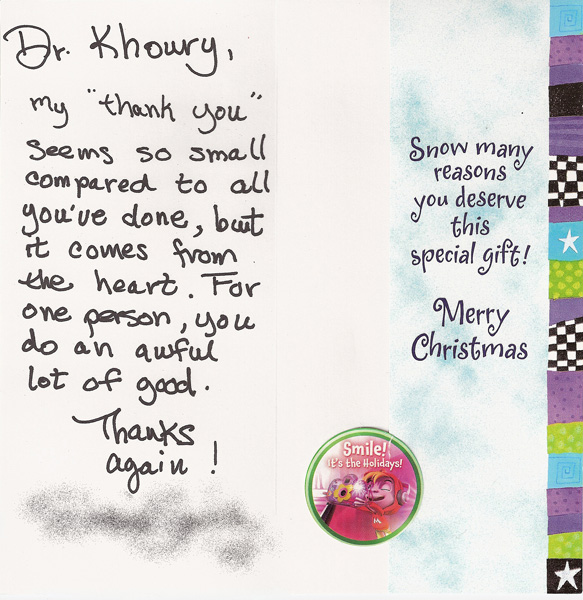 Dr. Khoury,
my "thank you"
seems so small
compared to all
you've done, but
it comes from
the heart. For
one person, you
do an awful
lot of good.
Thanks
again!
Snow many
reasons
you deserve
this
special gift!
Merry
Christmas
Smile!
It's the Holidays!